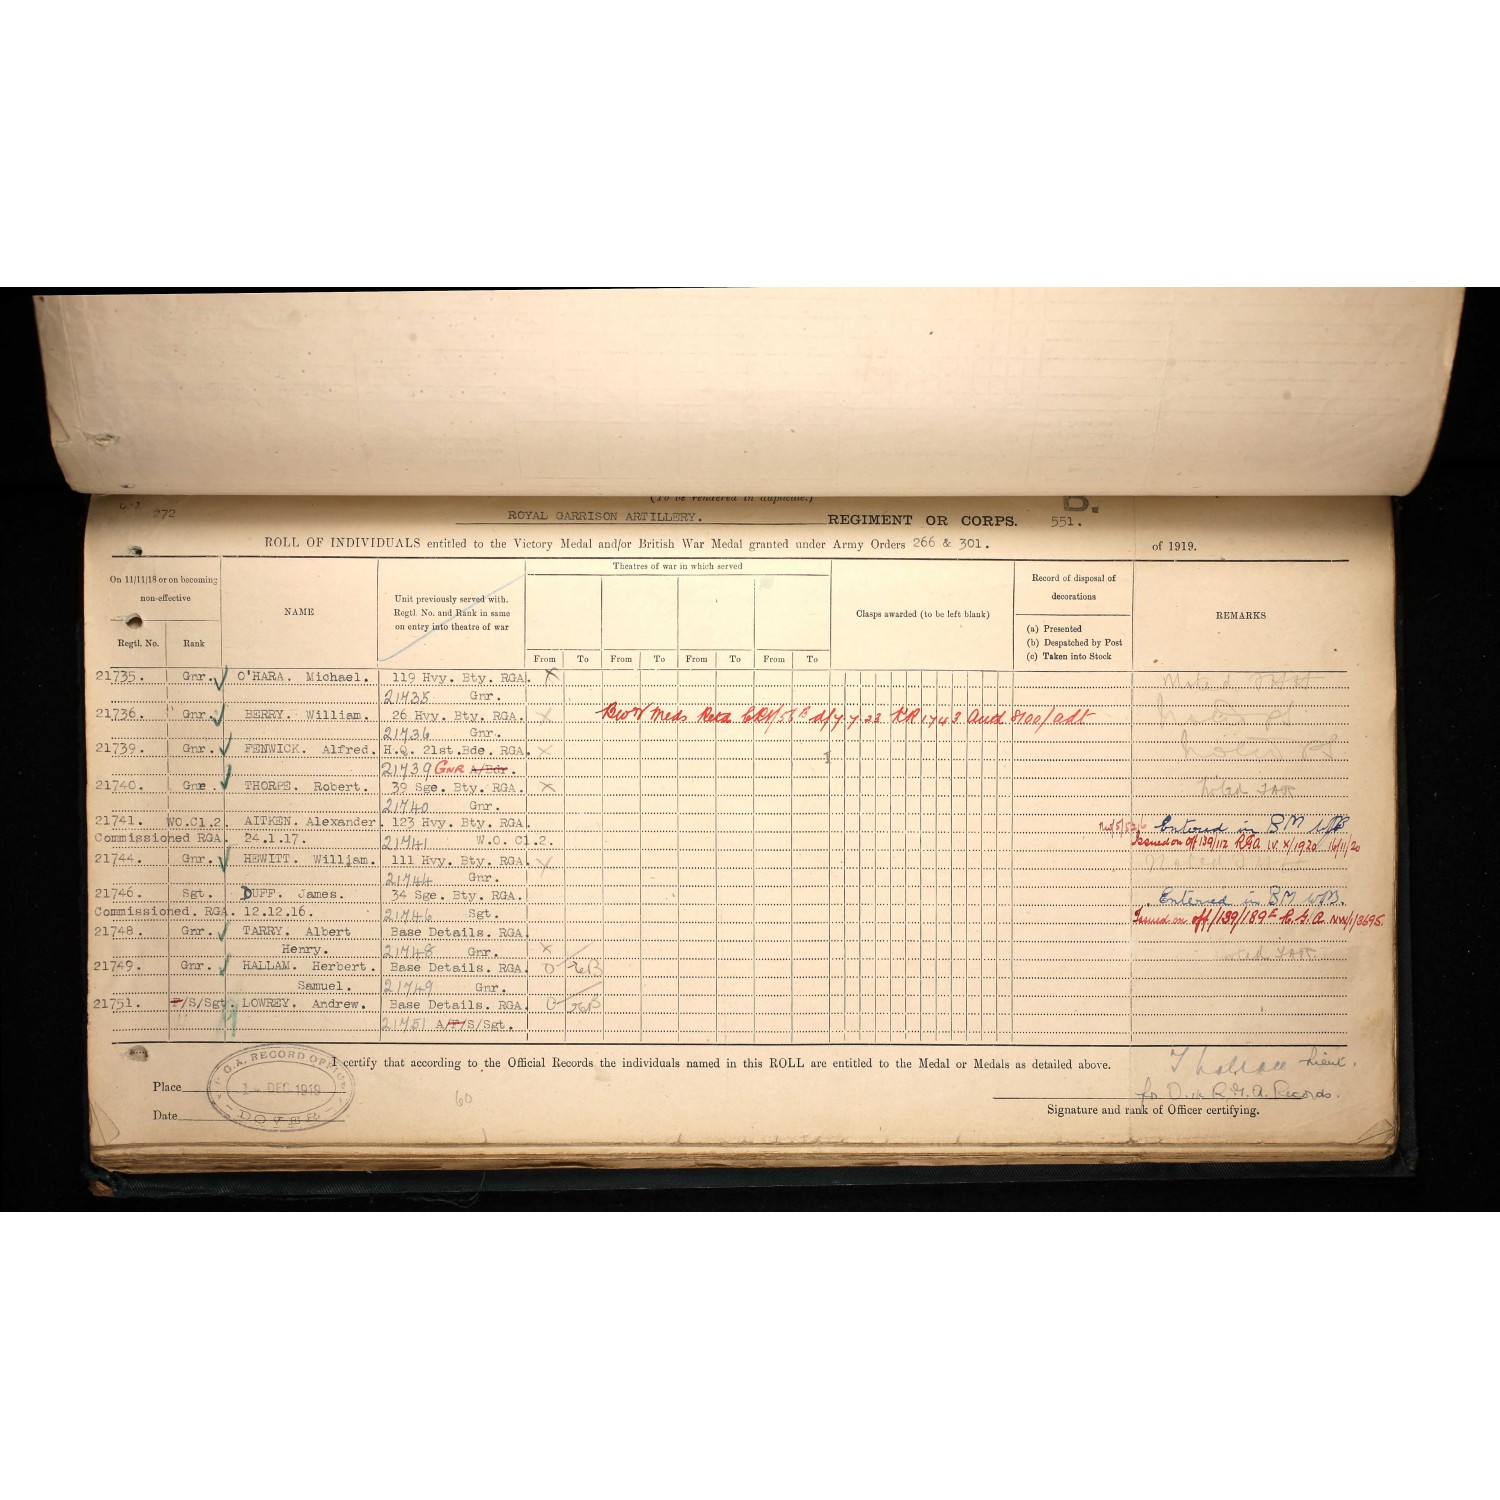 (To be rendered in duplicate.)
272
B.
ROYAL GARRISON ARTILLERY. REGIMENT OR CORPS. 551.
ROLL OF INDIVIDUALS entitled to the Victory Medal and/or British War Medal granted under Army Orders 266 & 301. of 1919.
On 11/11/18 or on becoming non-effective
Regtl. No. Rank
NAME
Unit previously served with. Regtl. No. and Rank in same on entry into theatre of war
Theatres of war in which served
From To From To From To From To
Clasps awarded (to be left blank)
Record of disposal of decorations
(a) Presented
(b) Despatched by Post
(c) Taken into Stock
REMARKS
21735. Gnr. O'HARA. Michael. 119 Hvy. Bty. RGA. X
21735 Gnr.
21736. Gnr. BERRY. William. 26 Hvy. Bty. RGA. X BWV Meds Retd KR 1743 Aud 8100/adt
21736 Gnr.
21739. Gnr. FENWICK. Alfred. H.Q. 21st.Bde. RGA. X
21739 GNR A/Bdr.
21740. Gnr. THORPE. Robert. 39 Sge. Bty. RGA. X
21740 Gnr.
21741. WO.Cl.2. AITKEN. Alexander. 123 Hvy. Bty. RGA. Entered in BM WB
Commissioned RGA. 24.1.17. 21741 W.O. Cl.2. Issued on off/139/112 RGA IV X/1920 16/11/20
21744. Gnr. HEWITT. William. 111 Hvy. Bty. RGA. X
21744 Gnr.
21746. Sgt. DUFF. James. 34 Sge. Bty. RGA. Entered in BM WB.
Commissioned. RGA. 12.12.16. 21746 Sgt. Issued on off/139/189E R.G.A. NW/1/3695.
21748. Gnr. TARRY. Albert Base Details. RGA.
Henry. 21748 Gnr. X
21749. Gnr. HALLAM. Herbert. Base Details. RGA. O/26B
Samuel. 21749 Gnr.
21751. F/S/Sgt. LOWREY. Andrew. Base Details. RGA. O/26B
21751 A/F/S/Sgt.
I certify that according to the Official Records the individuals named in this ROLL are entitled to the Medal or Medals as detailed above.
Lieut.
R.G.A. RECORD OFFICE
1 - DEC 1919
DOVER
Place
60
for O. i/c R.G.A. Records.
Date
Signature and rank of Officer certifying.